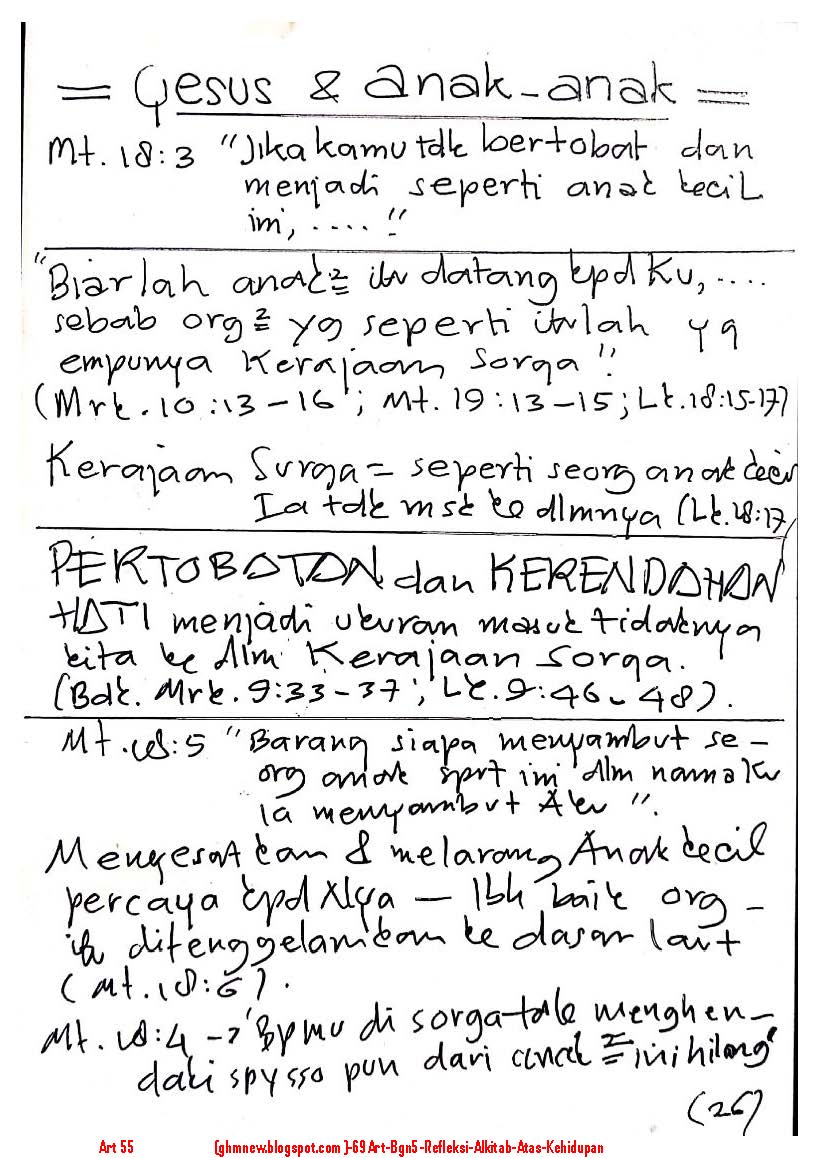 = Yesus & anak-anak =
Mt. 18:3 "Jika kamu tdk bertobat dan
menjadi seperti anak kecil
ini, ....."
"Biarlah anak² itu datang kpd Ku, ....
sebab org² yg seperti itulah yg
empunya Kerajaan Sorga".
(Mrk. 10:13-16; Mt. 19:13-15; Lk. 18:15-17)
Kerajaan Surga = seperti seorg anak kecil
Ia tdk msk ke dlmnya (Lk. 18:17)
PERTOBATAN dan KERENDAHAN
HATI menjadi ukuran masuk tidaknya
kita ke dlm Kerajaan Sorga.
(Bdk. Mrk. 9:33-37; Lk. 9:46-48).
Mt. 18:5 "Barang siapa menyambut se-
org anak sprt ini dlm nama Ku
ia menyambut Aku".
Menyesatkan & melarang Anak kecil
percaya kpd Nya — lbh baik org-
itu ditenggelamkan ke dasar laut
(Mt. 18:6).
Mt. 18:4 -> "Bpmu di sorga tdk menghen-
daki spy sso pun dari anak² ini hilang"
(26)
Art 55 [ghmnew.blogspot.com]-69 Art-Bgn5-Refleksi-Alkitab-Atas-Kehidupan